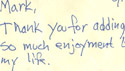 Mark,
Thank you for adding
so much enjoyment t
my life.